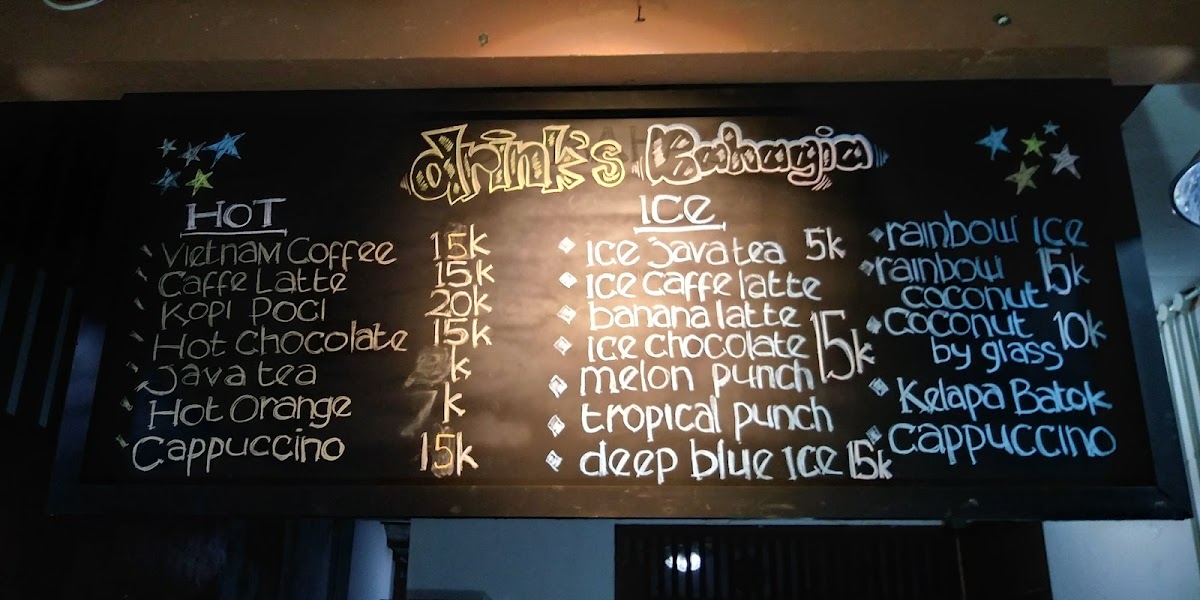 drink's Bahagia
HOT
VIETNAM COFFEE 15k
CAFFE LATTE 15k
KOPI POCI 20k
HOT CHOCOLATE 15k
Java tea k
HOT ORANGE k
Cappuccino 15k
ICE
ICE Java tea 5k
ICE CAFFE LATTE
banana latte
ICE CHOCOLATE 15k
melon punch
tropical punch
deep blue ICE 15k
rainbow ICE
rainbow 15k
coconut
coconut 10k
by glass
Kelapa Batok
cappuccino